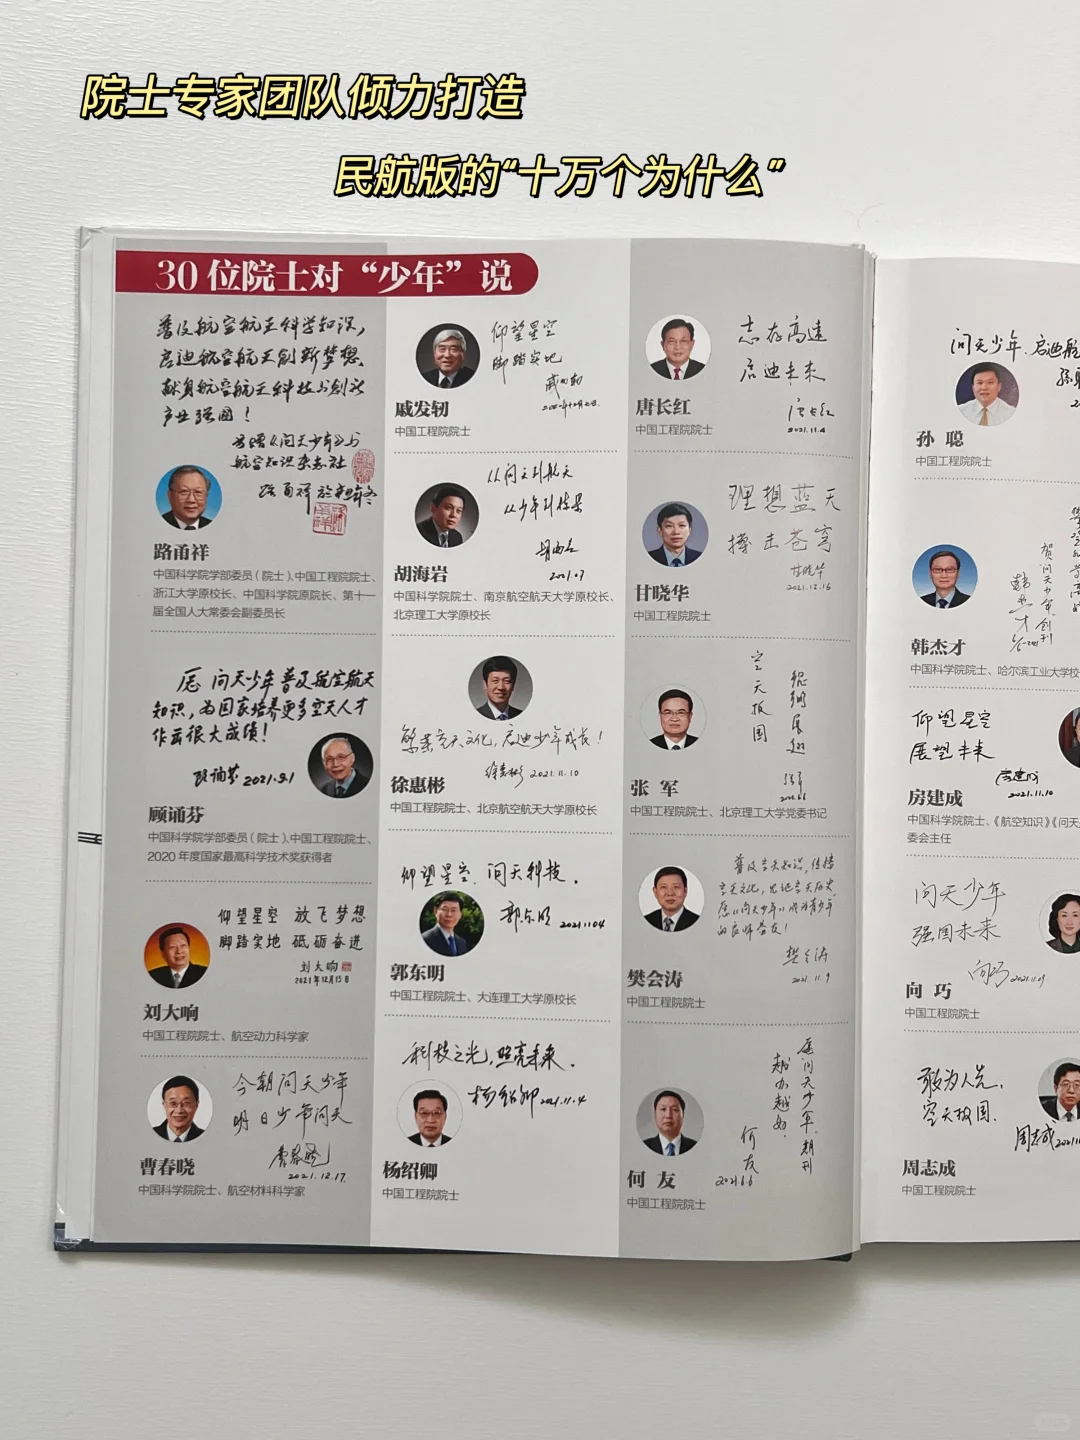 院士专家团队倾力打造
民航版的“十万个为什么”
30 位院士对“少年”说
普及航空航天科学知识，
启迪航空航天创新梦想，
献身航空航天科技与创新
产业强国！
航空知识杂志社
路甬祥
中国科学院学部委员（院士）、中国工程院院士、
浙江大学原校长、中国科学院原院长、第十一
届全国人大常委会副委员长
愿问天少年普及航空航天
知识，为国家培养更多空天人才
作出很大成绩！
顾诵芬 2021.9.1
顾诵芬
中国科学院学部委员（院士）、中国工程院院士、
2020 年度国家最高科学技术奖获得者
仰望星空 放飞梦想
脚踏实地 砥砺奋进
刘大响
2021年12月15日
刘大响
中国工程院院士、航空动力科学家
今朝问天少年
明日少年问天
曹春晓
2021.12.17.
曹春晓
中国科学院院士、航空材料科学家
仰望星空
脚踏实地
戚发轫
戚发轫
中国工程院院士
从问天到航天
从少年到栋梁
胡海岩
胡海岩
中国科学院院士、南京航空航天大学原校长、
北京理工大学原校长
繁荣空天文化，启迪少年成长！
徐惠彬 2021.11.10
徐惠彬
中国工程院院士、北京航空航天大学原校长
仰望星空、问天科技。
郭东明 2021.11.04
郭东明
中国工程院院士、大连理工大学原校长
科技之光，照亮未来。
杨绍卿 2021.11.4
杨绍卿
中国工程院院士
志存高远
启迪未来
唐长红
2021.11.4
唐长红
中国工程院院士
理想蓝天
搏击苍穹
甘晓华
2021.12.16
甘晓华
中国工程院院士
空天报国
张军
张 军
中国工程院院士、北京理工大学党委书记
普及空天知识，传播
空天文化，
愿《问天少年》成为青少年
的良师益友！
樊会涛
2021.11.9
樊会涛
中国工程院院士
愿问天少年期刊
越办越好。
何友
2021.6.6
何 友
中国工程院院士
问天少年、启迪航
孙 聪
中国工程院院士
贺问天少年创刊
韩杰才
韩杰才
中国科学院院士、哈尔滨工业大学校
仰望星空
展望未来
房建成
2021.11.10
房建成
中国科学院院士、《航空知识》《问天
委会主任
问天少年
强国未来
向巧 2021.11.09
向 巧
中国工程院院士
敢为人先，
空天报国。
周志成
周志成
中国工程院院士